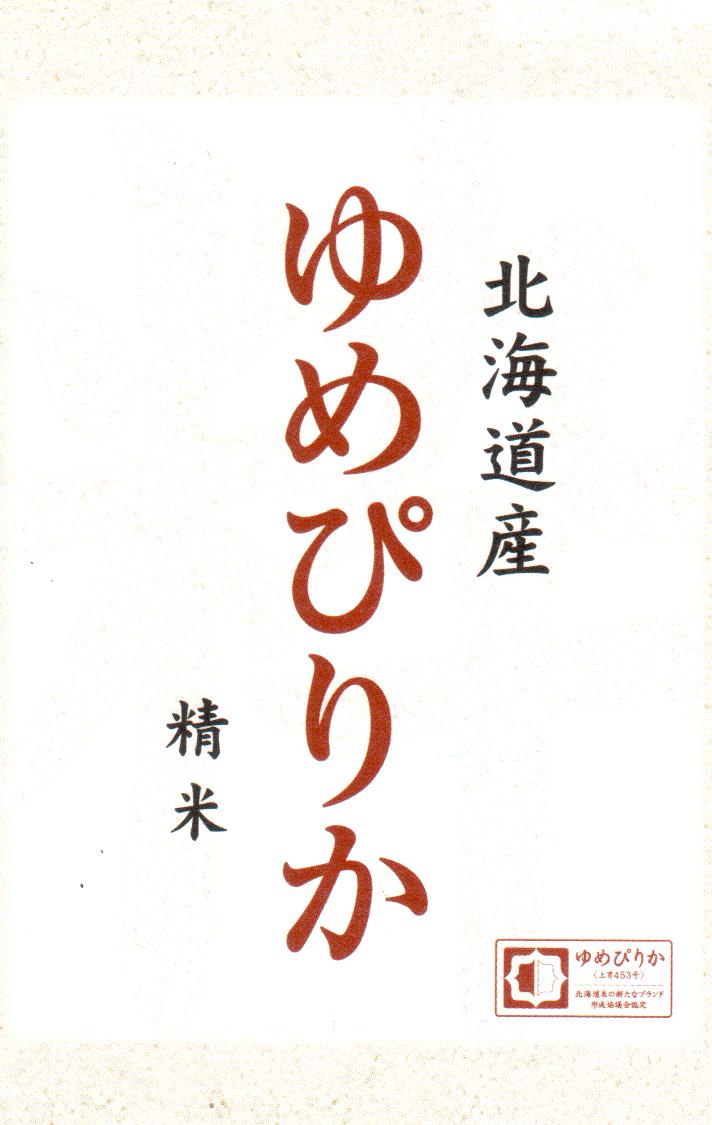 北海道産
ゆめぴりか
精米
ゆめぴりか
〈上育453号〉
北海道米の新たなブランド
形成協議会認定